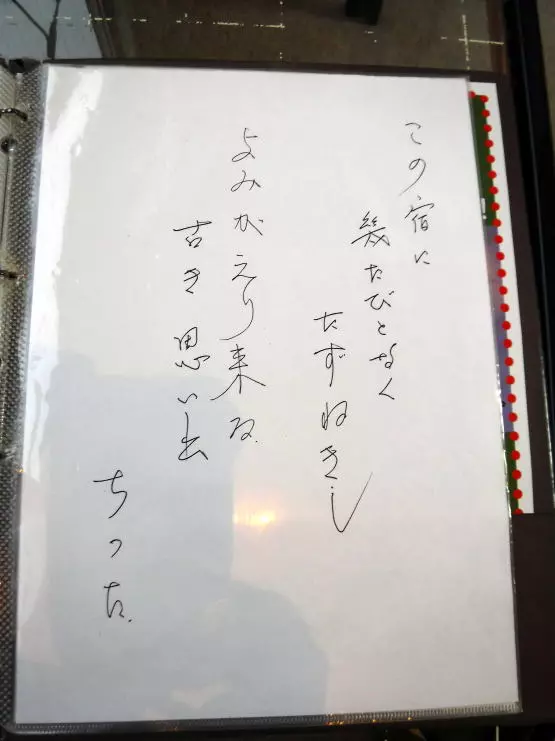 この宿に
幾たびとなく
たずねきし
よみがえり来る
古き思い出
ちった